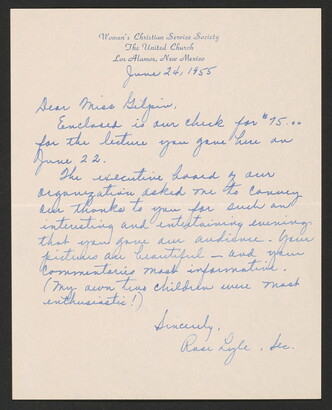 Woman's Christian Service Society
The United Church
Los Alamos, New Mexico
June 24, 1955
Dear Miss Gilpin,
Enclosed is our check for $75.00
for the lecture you gave here on
June 22.
The executive board of our
organization asked me to convey
our thanks to you for such an
interesting and entertaining evening
that you gave our audience. Your
pictures are beautiful - and your
commentaries most informative.
(My own two children were most
enthusiastic!)
Sincerely,
Rose Lyle, Sec.